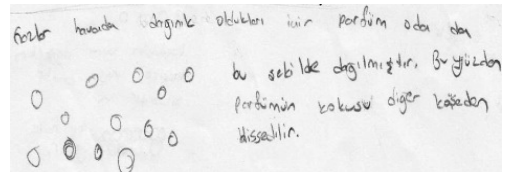 Gazlar havada dağınık oldukları için parfüm oda da
bu şekilde dağılmıştır. Bu yüzden
parfümün kokusu diğer köşeden
hissedilir.